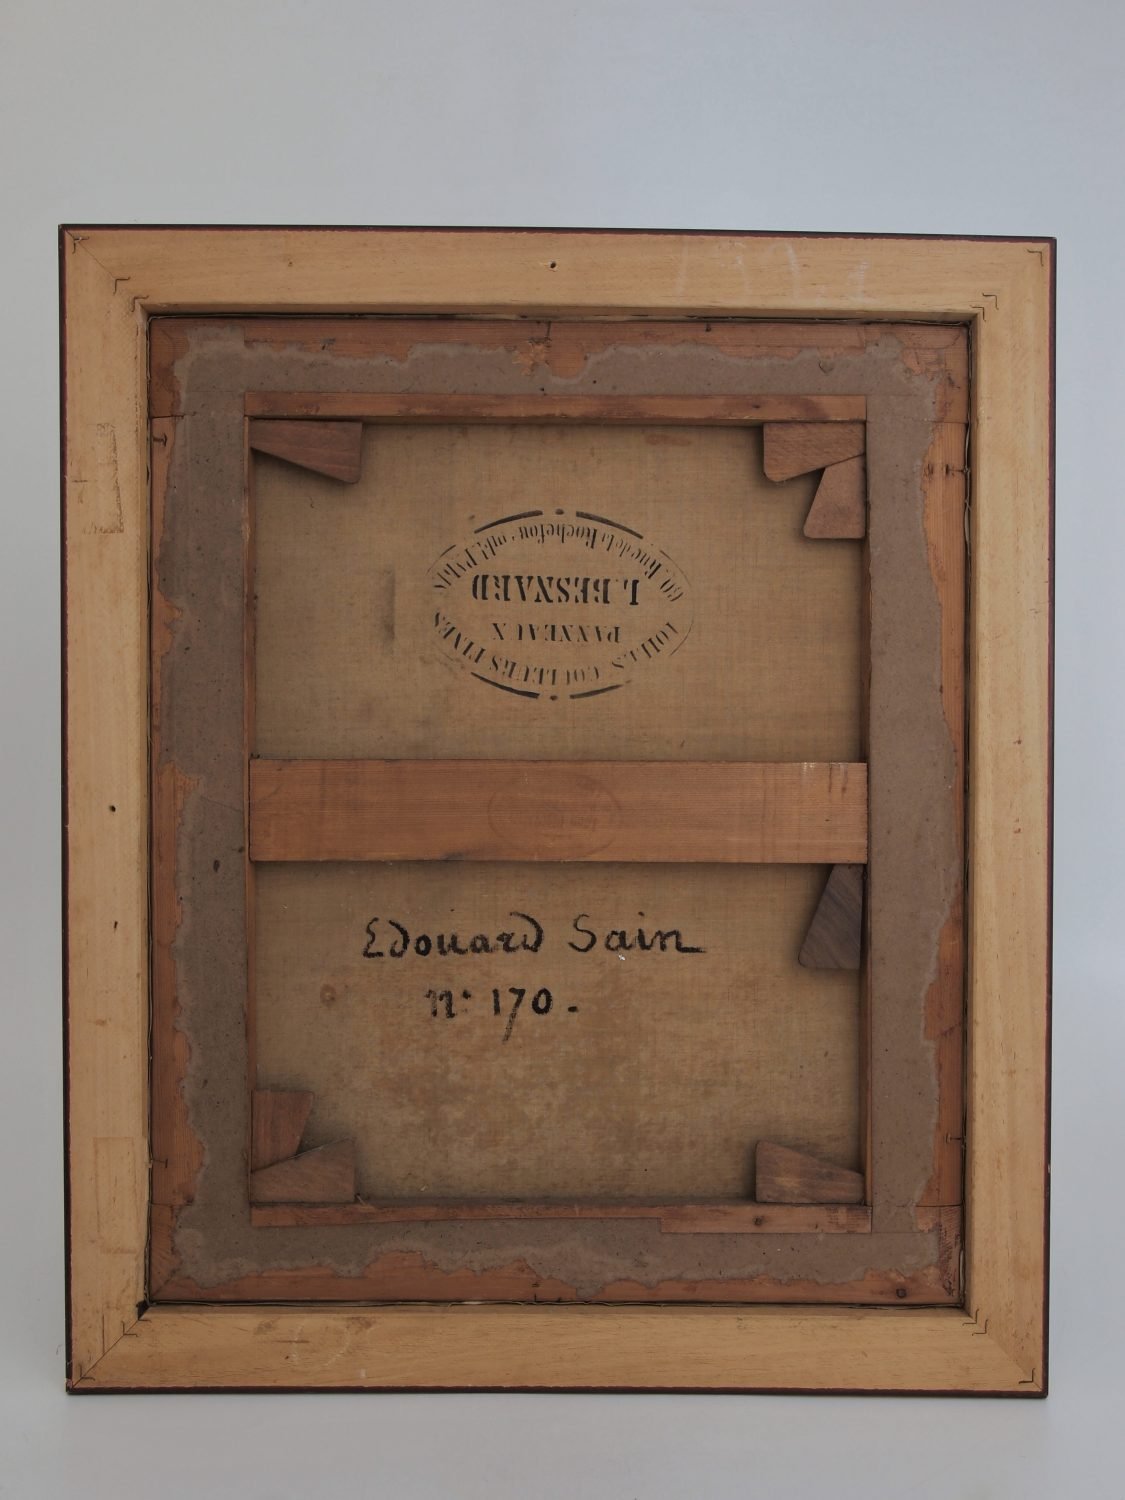 60, Rue de la Rochefoucauld, PARIS
L. BESNARD
PANNEAUX
TOILES COULEURS FINES
Edouard Sain
n° 170.